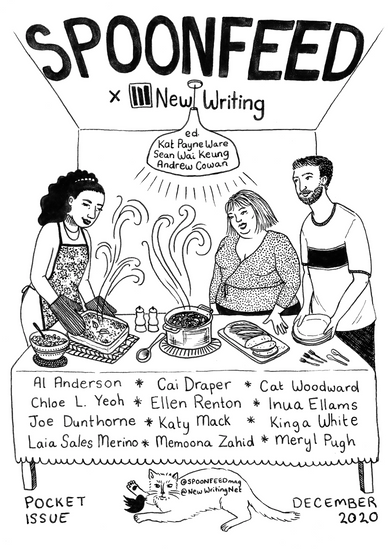 SPOONFEED
x New Writing
ed.
Kat Payne Ware
Sean Wai Keung
Andrew Cowan
Al Anderson * Cai Draper * Cat Woodward
Chloe L. Yeoh * Ellen Renton * Inua Ellams
Joe Dunthorne * Katy Mack * Kinga White
Laia Sales Merino * Memoona Zahid * Meryl Pugh
POCKET
ISSUE
@SPOONFEEDmag
@NewWritingNet
DECEMBER
2020